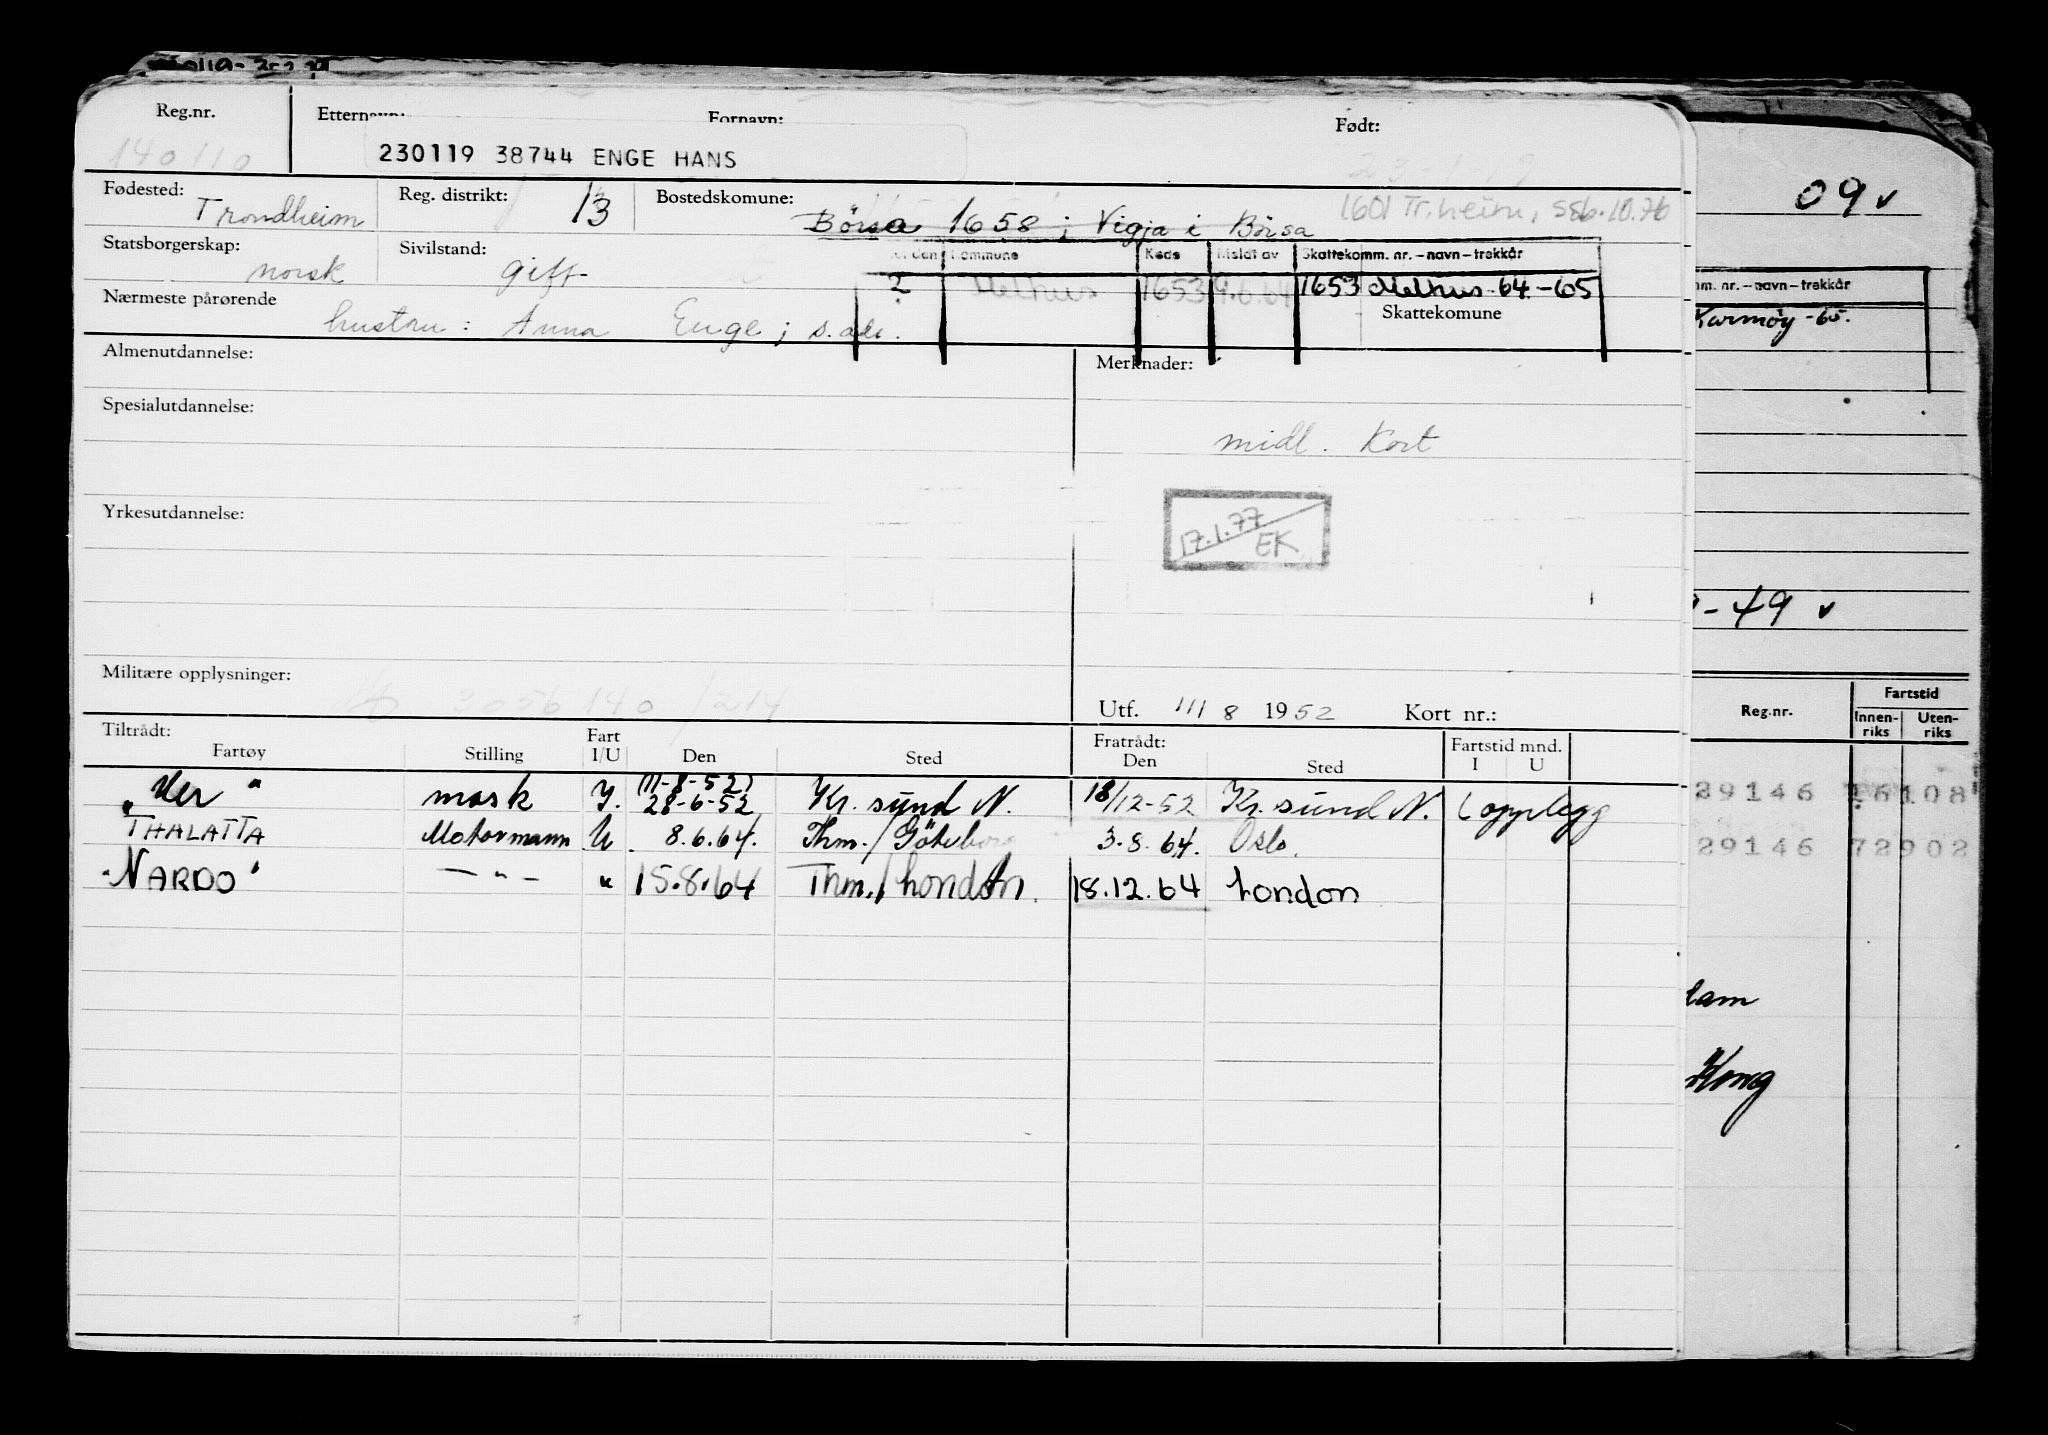 Reg.nr. Etternavn: Fornavn: Født:
140110 230119 38744 ENGE HANS 23-1-19
09 v
Fødested: Trondheim Reg. distrikt: 13 Bostedskomune: Börsa 1658 ; Vigja i Börsa 1601 Tr.heim, SSb.10.76
Statsborgerskap: norsk Sivilstand: gift
Kommune Kode Mislat av Skattekomm. nr. – navn – trekkår
2 Melhus 1653 9.6.64 1653 Melhus 64 - 65
Skattekomune
mm. nr. – navn – trekkår
Karmøy - 65.
Nærmeste pårørende hustru : Anna Enge ; s. adr.
Almenutdannelse: Merknader:
Spesialutdannelse:
midl. Kort
Yrkesutdannelse:
17.1.77
EK
- 49 v
Militære opplysninger: 3056 140 / 214
Utf. 11/8 1952 Kort nr.:
Reg.nr. Fartstid
Innen-riks Uten-riks
Tiltrådt: Fart Fratrådt: Fartstid mnd.
Fartøy Stilling I/U Den Sted Den Sted I U
(11-8-52)
"Ver" mask I. 28-6-52 Kr. sund N. 18/12-52 Kr. sund N. (opplegg
THALATTA Motormann U. 8.6.64. Thm./Göteborg 3.8.64. Oslo.
"NARDO" — " — " 15.8.64 Thm./London. 18.12.64 London
29146 26108
29146 72902
dam
Kong